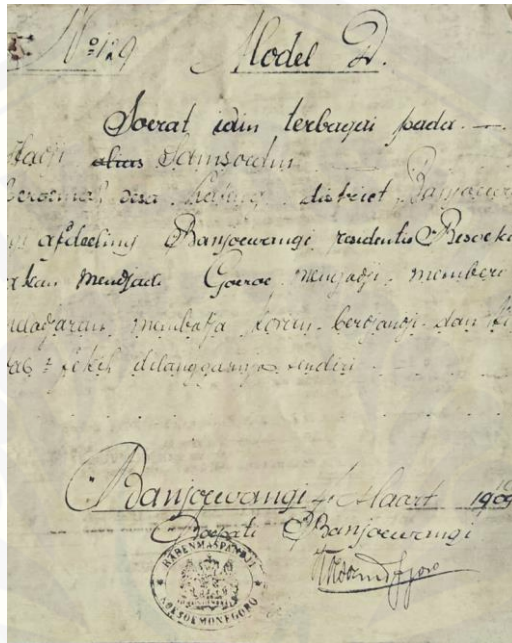 Nº 129 Model D.
Soerat idin terbagai pada. —
Hadji alias Samsoedin
beroemah desa district Banjoewa
afdeeling Banjoewangi residentie Besoeki
akan mendjadi Goeroe mengadji, memberi
membatja koran. berdjandji dan ki
tab² fekih dilanggarnja sendiri
Banjoewangi 4 Maart 1909
Boepati Banjoewangi
RADEN MAS PANDJI
NOTO KOESOEMONEGORO